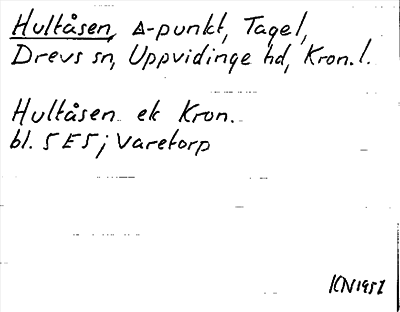 Hultåsen, Δ-punkt, Tagel,
Drevs sn, Uppvidinge hd, Kron. l.
Hultåsen ek Kron.
bl. 5 E 5; Varetorp
KN1951